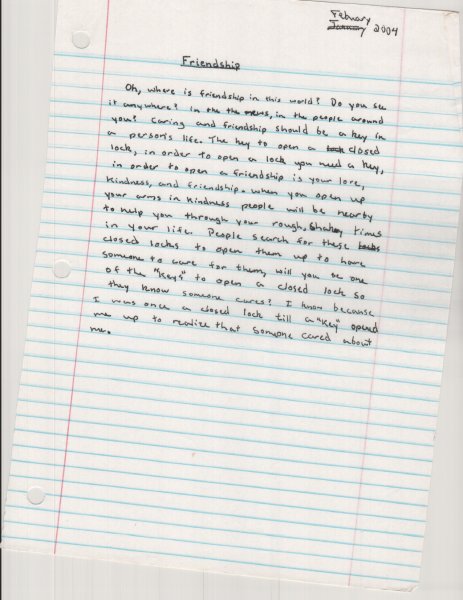 Febuary
January 2004
Friendship
Oh, where is friendship in this world? Do you see
it anywhere? in the the news, in the people around
you? Caring and friendship should be a key in
a person's life. The key to open a lock closed
lock, in order to open a lock you need a key,
in order to open a friendship is your love,
kindness, and friendship. when you open up
your arms in kindness people will be nearby
to help you through your rough, shakey times
in your life. People search for these locks
closed locks to open them up to have
someone to care for them, will you be one
of the "keys" to open a closed lock so
they know someone cares? I know because
I was once a closed lock till a "key" opened
me up to realize that someone cared about
me.